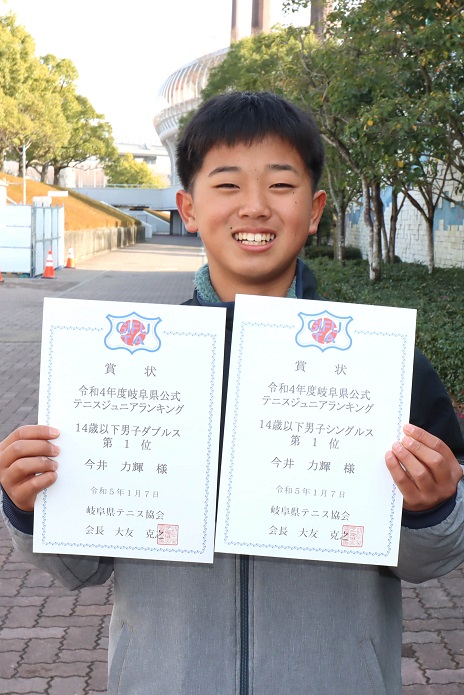 賞状
令和4年度岐阜県公式
テニスジュニアランキング
14歳以下男子ダブルス
第1位
今井 力輝 様
令和5年1月7日
岐阜県テニス協会
会長 大友 克之
賞状
令和4年度岐阜県公式
テニスジュニアランキング
14歳以下男子シングルス
第1位
今井 力輝 様
令和5年1月7日
岐阜県テニス協会
会長 大友 克之